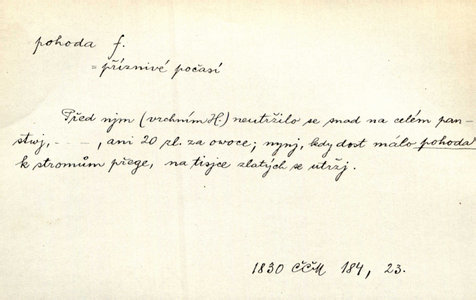 pohoda f.
= příznivé počasí
Před njm (vrchním H.) neutržilo se snad na celém pan-
stwj, - - -, ani 20 zl. za owoce; nynj, kdy dost málo pohoda
k stromům přege, na tisjce zlatých se utržj.
1830 ČČM 184, 23.